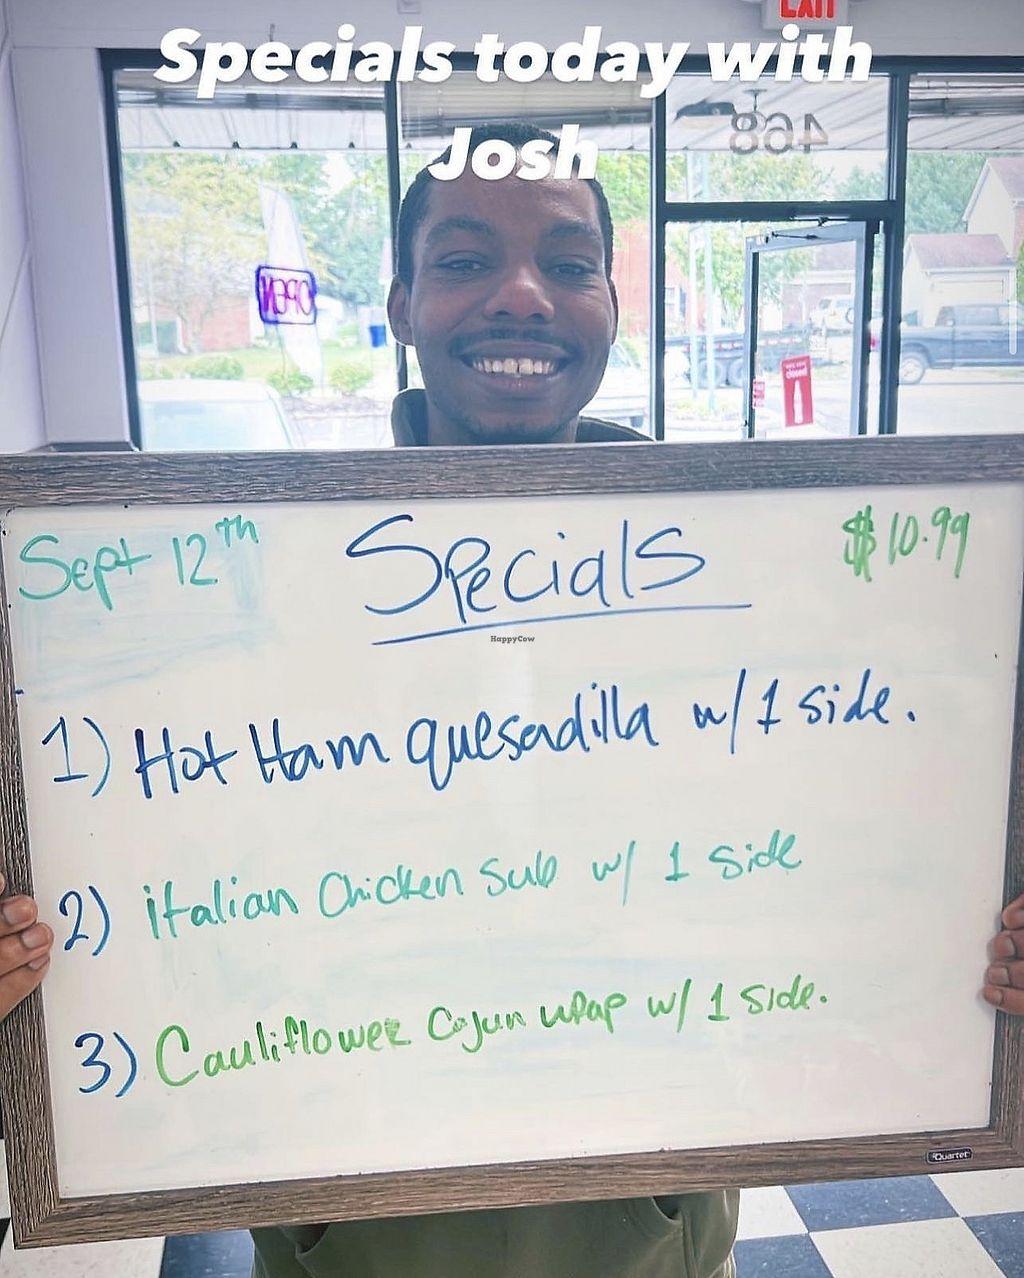 EXIT
Specials today with
Josh
468
OPEN
closed
Sept 12th
Specials
$10.99
HappyCow
1) Hot Ham quesadilla w/ 1 side.
2) italian Chicken Sub w/ 1 side
3) Cauliflower Cajun wrap w/ 1 side.
Quartet